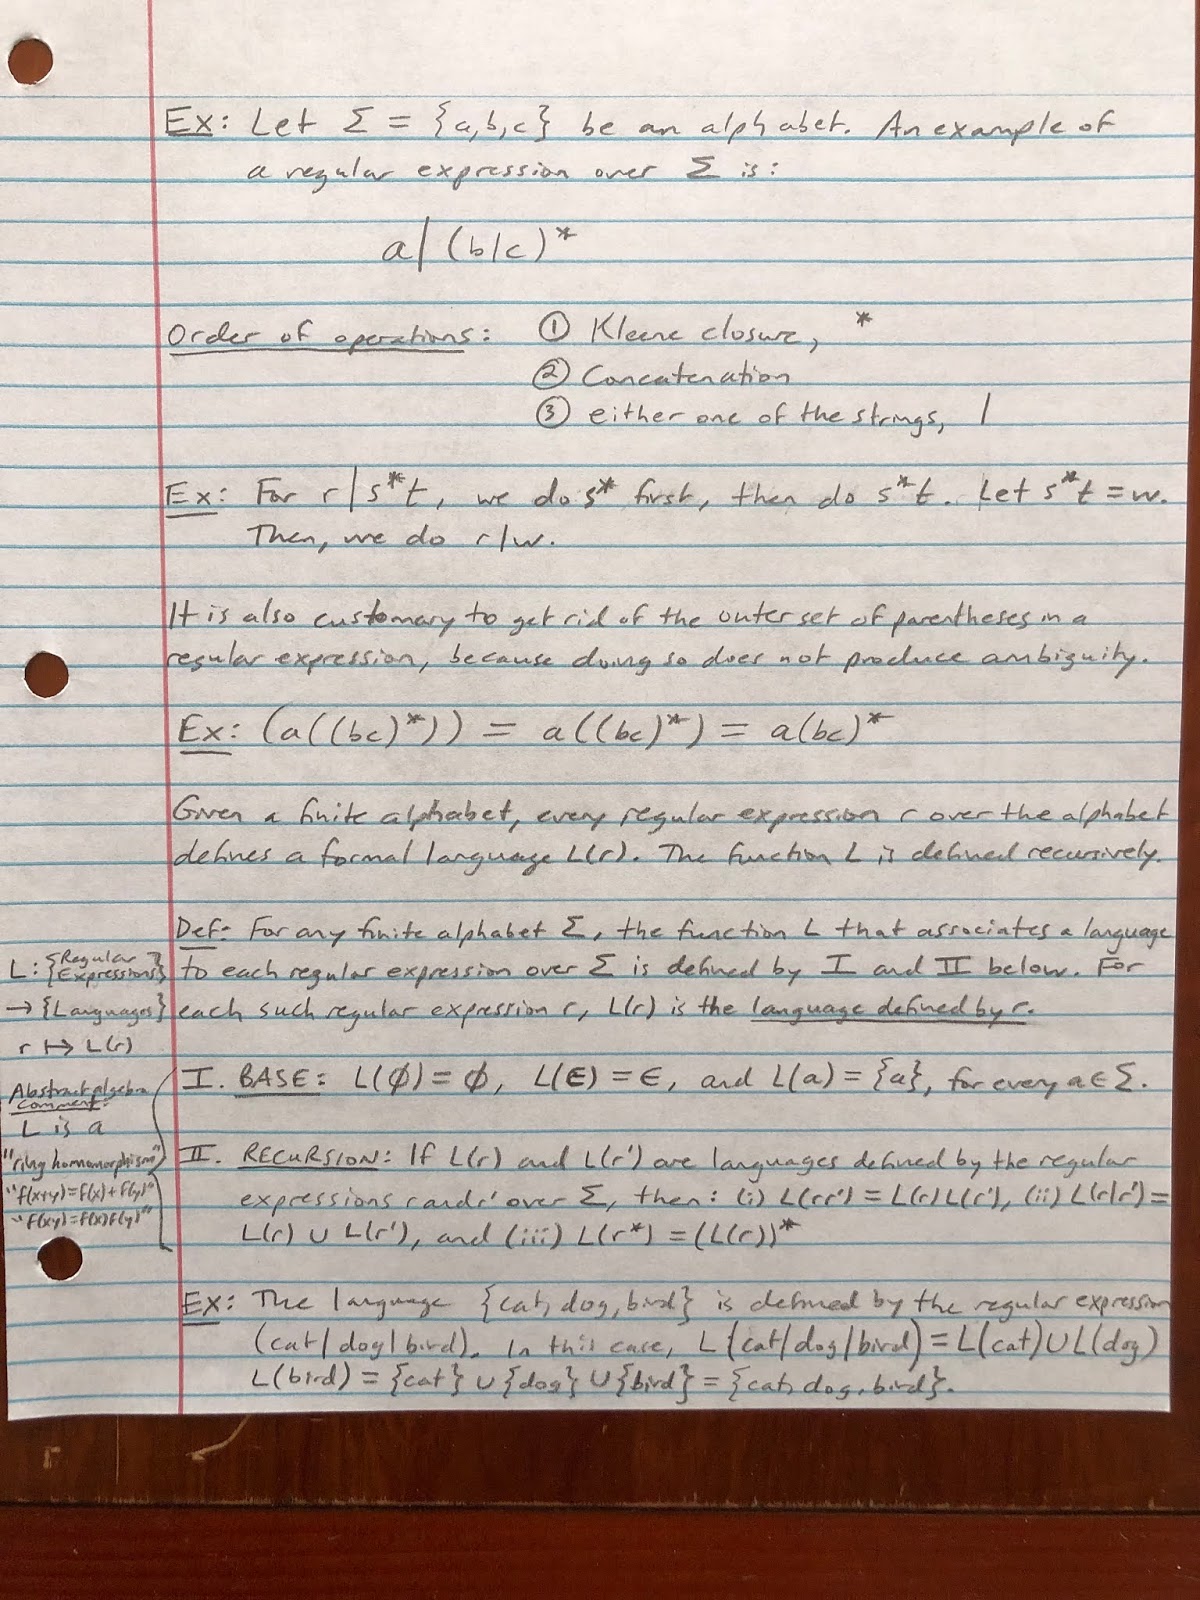 Ex: Let Σ = {a,b,c} be an alphabet. An example of
a regular expression over Σ is:
a|(b|c)*
Order of operations: ① Kleene closure, *
② Concatenation
③ either one of the strings, |
Ex: For r|s*t, we do s* first, then do s*t. Let s*t = w.
Then, we do r|w.
It is also customary to get rid of the outer set of parentheses in a
regular expression, because doing so does not produce ambiguity.
Ex: (a((bc)*)) = a((bc)*) = a(bc)*
Given a finite alphabet, every regular expression r over the alphabet
defines a formal language L(r). The function L is defined recursively.
Def: For any finite alphabet Σ, the function L that associates a language
to each regular expression over Σ is defined by I and II below. For
each such regular expression r, L(r) is the language defined by r.
L: {Regular Expressions}
→ {Languages}
r ↦ L(r)
I. BASE: L(∅) = ∅, L(ϵ) = ϵ, and L(a) = {a}, for every a ∈ Σ.
Abstract algebra
comment:
L is a
"ring homomorphism"
"f(x+y)=f(x)+f(y)"
"f(xy)=f(x)f(y)"
II. RECURSION: If L(r) and L(r') are languages defined by the regular
expressions r and r' over Σ, then: (i) L(rr') = L(r)L(r'), (ii) L(r|r') =
L(r) ∪ L(r'), and (iii) L(r*) = (L(r))*
Ex: The language {cat, dog, bird} is defined by the regular expression
(cat|dog|bird). In this case, L(cat|dog|bird) = L(cat) ∪ L(dog)
L(bird) = {cat} ∪ {dog} ∪ {bird} = {cat, dog, bird}.